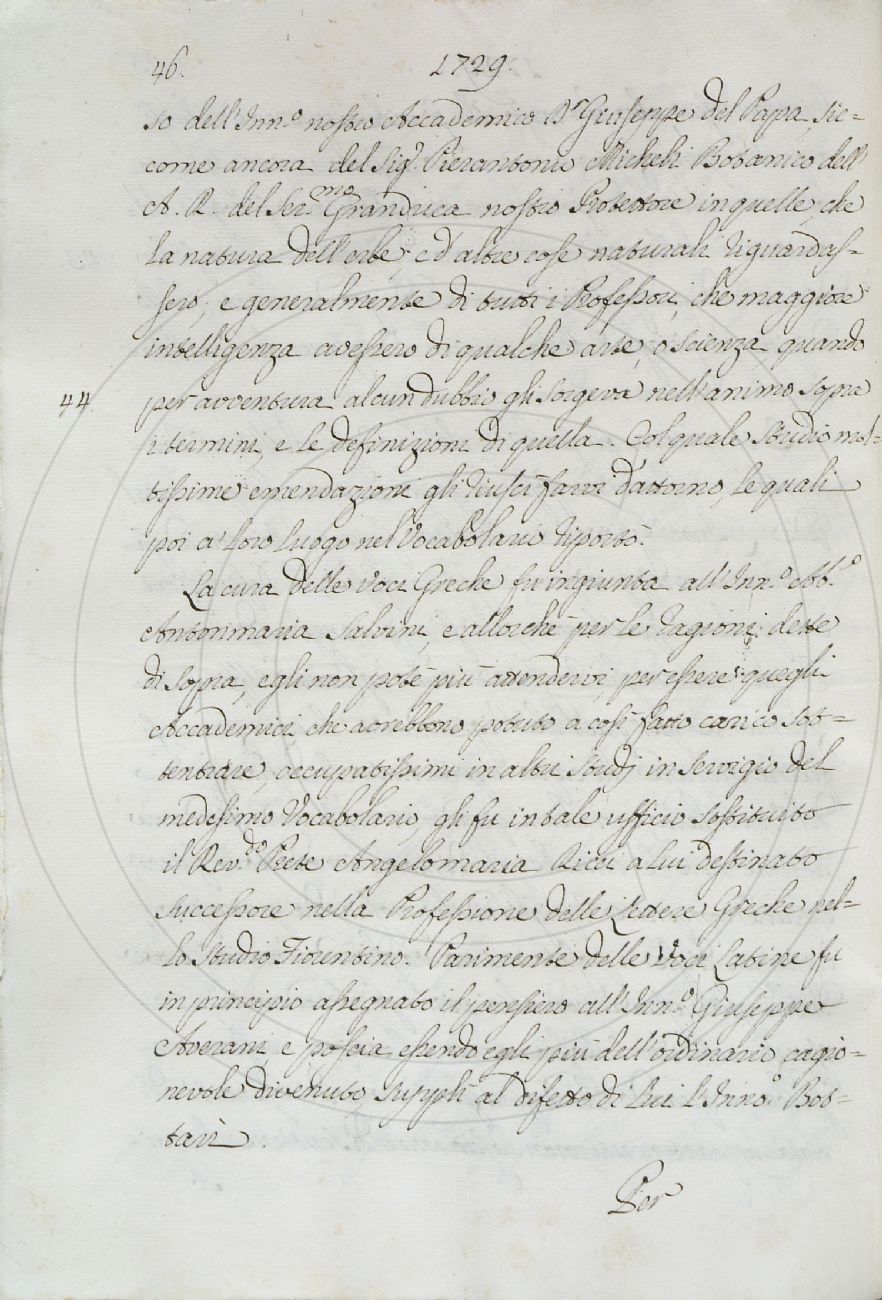 46. 1729.
so dell'Inn.º nostro Accademico D.r Giuseppe del Papa, sic=
come ancora del Sig.r Pierantonio Micheli Botanico dell'
A. R. del Ser.mo Granduca nostro Protettore in quelle, che
la natura dell'erbe, e d'altre cose naturali riguardas=
sero, e generalmente di tutti i Professori, che maggiore
intelligenza avessero di qualche arte, o scienza, quando
44. per avventura alcun dubbio gli sorgeva nell'animo sopra
i termini, e le definizioni di quella. Col quale studio mol=
tissime emendazioni gli riuscì farvi d'attorno, le quali
poi a' loro luogo nel Vocabolario riportò.
La cura delle voci Greche fu ingiunta all'Inn.º Ab.º
Antonmaria Salvini, e allorchè per le ragioni dette
di sopra, egli non potè più attendervi, per essere quegli
Accademici, che avrebbono potuto a così fatto carico sot=
tentrare, occupatissimi in altri studj in servigio del
medesimo Vocabolario, gli fu in tale ufficio sostituito
il Rev.do Prete Angelomaria Ricci a lui destinato
successore nella Professione delle Lettere Greche nel=
lo Studio Fiorentino. Parimente delle Voci Latine fu
in principio assegnato il pensiero all'Inn.º Giuseppe
Averani e poscia essendo egli più dell'ordinario cagio=
nevole divenuto, supplì al difetto di lui l'Inno.º Bot=
tari.
Per